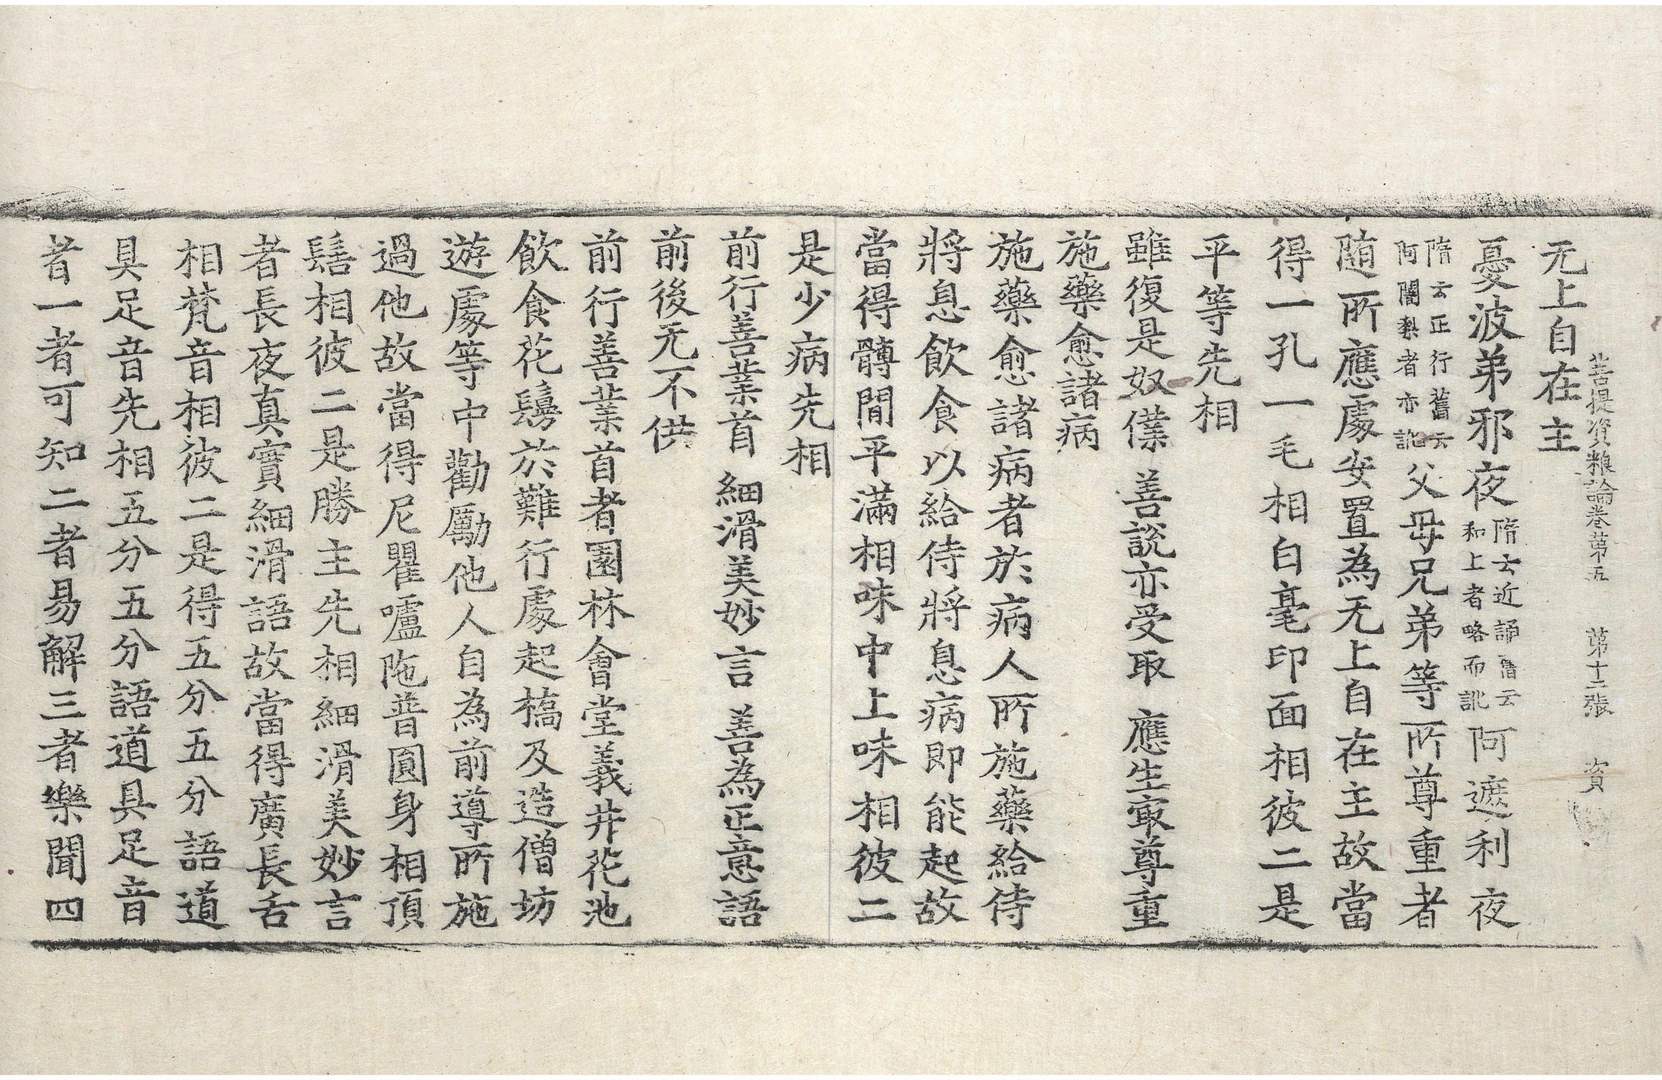 菩提資粮論卷第五　第十二張　資
无上自在主
憂波弟邪夜隋云近誦舊云和上者略而訛阿遮利夜
隋云正行舊云阿闍梨者亦訛父母兄弟等所尊重者
随所應處安置為无上自在主故當
得一孔一毛相白毫印面相彼二是
平等先相
雖復是奴僕　善說亦受取　應生㝡尊重
施藥愈諸病
施藥愈諸病者於病人所施藥給侍
將息飲食以給侍將息病即能起故
當得髆間平滿相味中上味相彼二
是少病先相
前行善業首　細滑美妙言　善為正意語
前後无不供
前行善業首者園林會堂義井花池
飲食花鬘於難行處起橋及造僧坊
遊處等中勸勵他人自為前導所施
過他故當得尼瞿嚧陁普圓身相頂
髻相彼二是勝主先相細滑美妙言
者長夜真實細滑語故當得廣長舌
相梵音相彼二是得五分五分語道
具足音先相五分五分語道具足音
者一者可知二者易解三者樂聞四